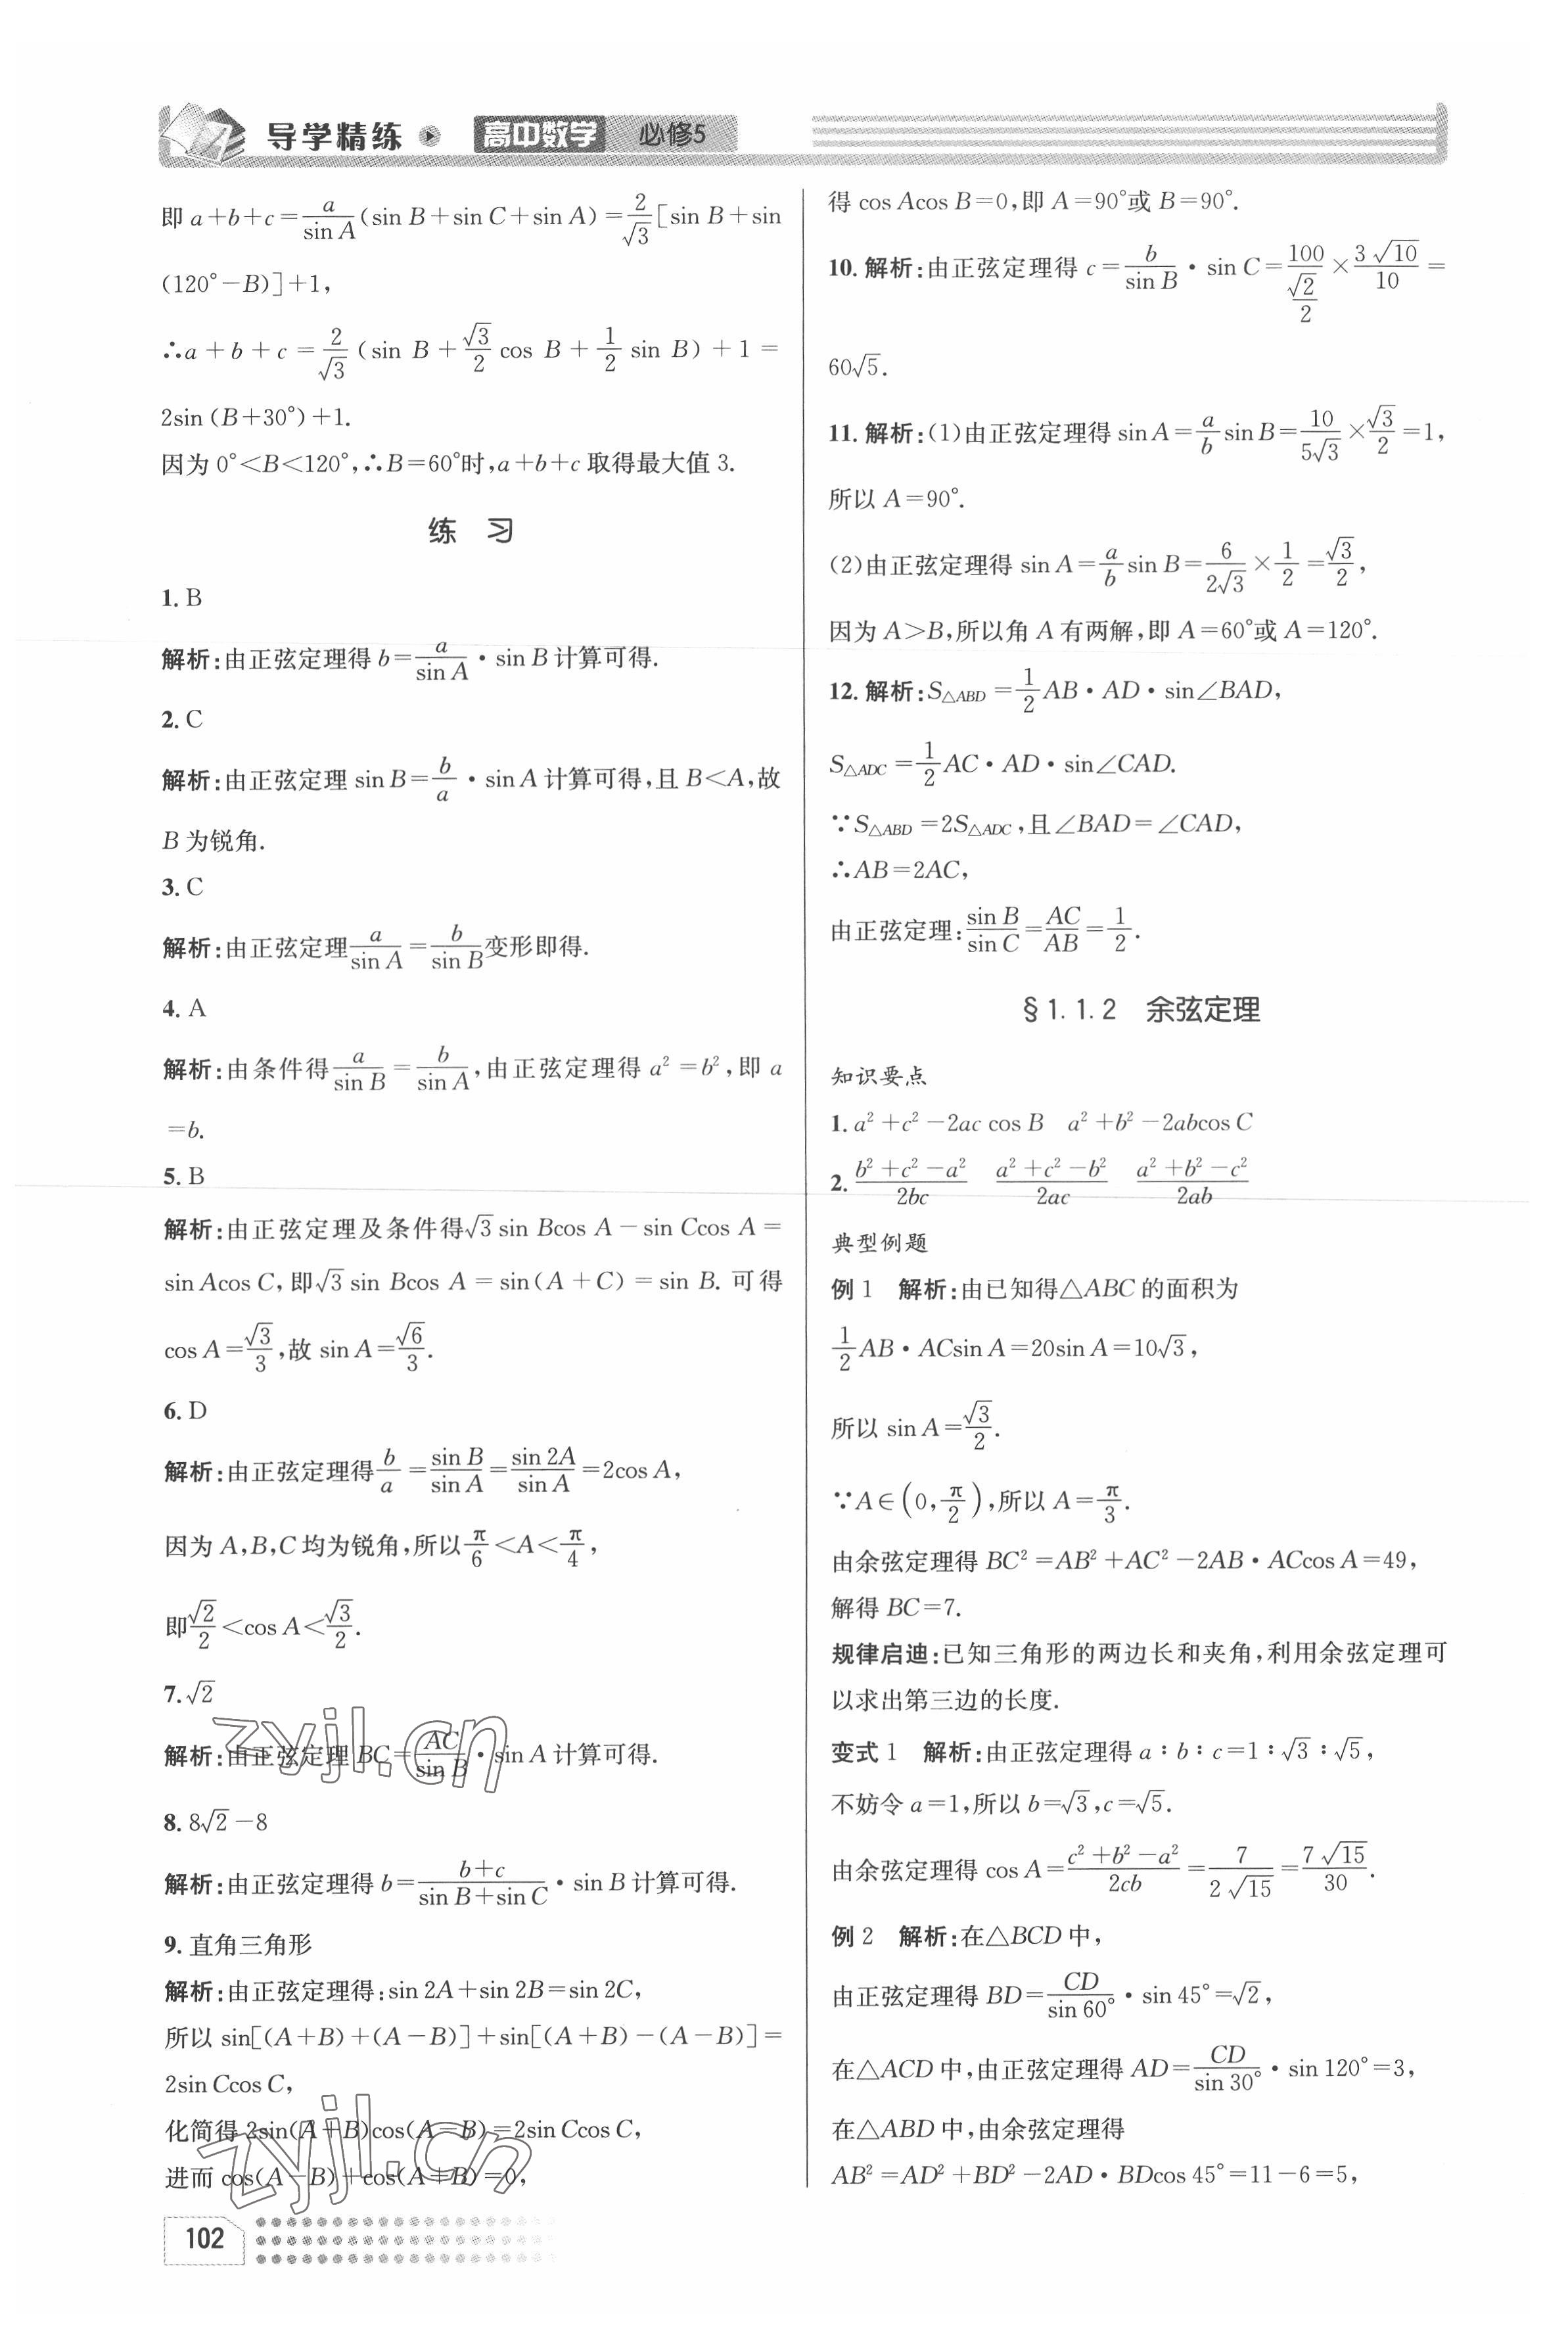 导学精练 高中数学 必修5
即 a+b+c=a/sin A(sin B+sin C+sin A)=2/√3[sin B+sin
(120°-B)]+1,
∴a+b+c=2/√3(sin B+√3/2 cos B+1/2 sin B)+1=
2sin(B+30°)+1.
因为 0°<B<120°,∴B=60°时,a+b+c取得最大值 3.
练 习
1. B
解析:由正弦定理得 b=a/sin A·sin B计算可得.
2. C
解析:由正弦定理 sin B=b/a·sin A计算可得,且 B<A,故
B为锐角.
3. C
解析:由正弦定理a/sin A=b/sin B变形即得.
4. A
解析:由条件得a/sin B=b/sin A,由正弦定理得 a²=b²,即 a
=b.
5. B
解析:由正弦定理及条件得√3 sin Bcos A-sin Ccos A=
sin Acos C,即√3 sin Bcos A=sin(A+C)=sin B.可得
cos A=√3/3,故 sin A=√6/3.
6. D
解析:由正弦定理得b/a=sin B/sin A=sin 2A/sin A=2cos A,
因为 A,B,C均为锐角,所以π/6<A<π/4,
即√2/2<cos A<√3/2.
7. √2
解析:由正弦定理 BC=AC/sin B·sin A计算可得.
8. 8√2-8
解析:由正弦定理得 b=(b+c)/(sin B+sin C)·sin B计算可得.
9. 直角三角形
解析:由正弦定理得:sin 2A+sin 2B=sin 2C,
所以 sin[(A+B)+(A-B)]+sin[(A+B)-(A-B)]=
2sin Ccos C,
化简得 2sin(A+B)cos(A-B)=2sin Ccos C,
进而 cos(A-B)+cos(A+B)=0,
zyjl.cn
zyjl.cn
102
得 cos Acos B=0,即 A=90°或 B=90°.
10. 解析:由正弦定理得 c=b/sin B·sin C=100/(√2/2)×3√10/10=
60√5.
11. 解析:(1)由正弦定理得 sin A=a/b sin B=10/5√3×√3/2=1,
所以 A=90°.
(2)由正弦定理得 sin A=a/b sin B=6/2√3×1/2=√3/2,
因为 A>B,所以角 A有两解,即 A=60°或 A=120°.
12. 解析:S△ABD=1/2AB·AD·sin∠BAD,
S△ADC=1/2AC·AD·sin∠CAD.
∵S△ABD=2S△ADC,且∠BAD=∠CAD,
∴AB=2AC,
由正弦定理:sin B/sin C=AC/AB=1/2.
§1.1.2 余弦定理
知识要点
1. a²+c²-2ac cos B a²+b²-2abcos C
2. (b²+c²-a²)/2bc (a²+c²-b²)/2ac (a²+b²-c²)/2ab
典型例题
例 1 解析:由已知得△ABC的面积为
1/2AB·ACsin A=20sin A=10√3,
所以 sin A=√3/2.
∵A∈(0,π/2),所以 A=π/3.
由余弦定理得 BC²=AB²+AC²-2AB·ACcos A=49,
解得 BC=7.
规律启迪:已知三角形的两边长和夹角,利用余弦定理可
以求出第三边的长度.
变式 1 解析:由正弦定理得 a∶b∶c=1∶√3∶√5,
不妨令 a=1,所以 b=√3,c=√5.
由余弦定理得 cos A=(c²+b²-a²)/2cb=7/2√15=7√15/30.
例 2 解析:在△BCD中,
由正弦定理得 BD=CD/sin 60°·sin 45°=√2,
在△ACD中,由正弦定理得 AD=CD/sin 30°·sin 120°=3,
在△ABD中,由余弦定理得
AB²=AD²+BD²-2AD·BDcos 45°=11-6=5,